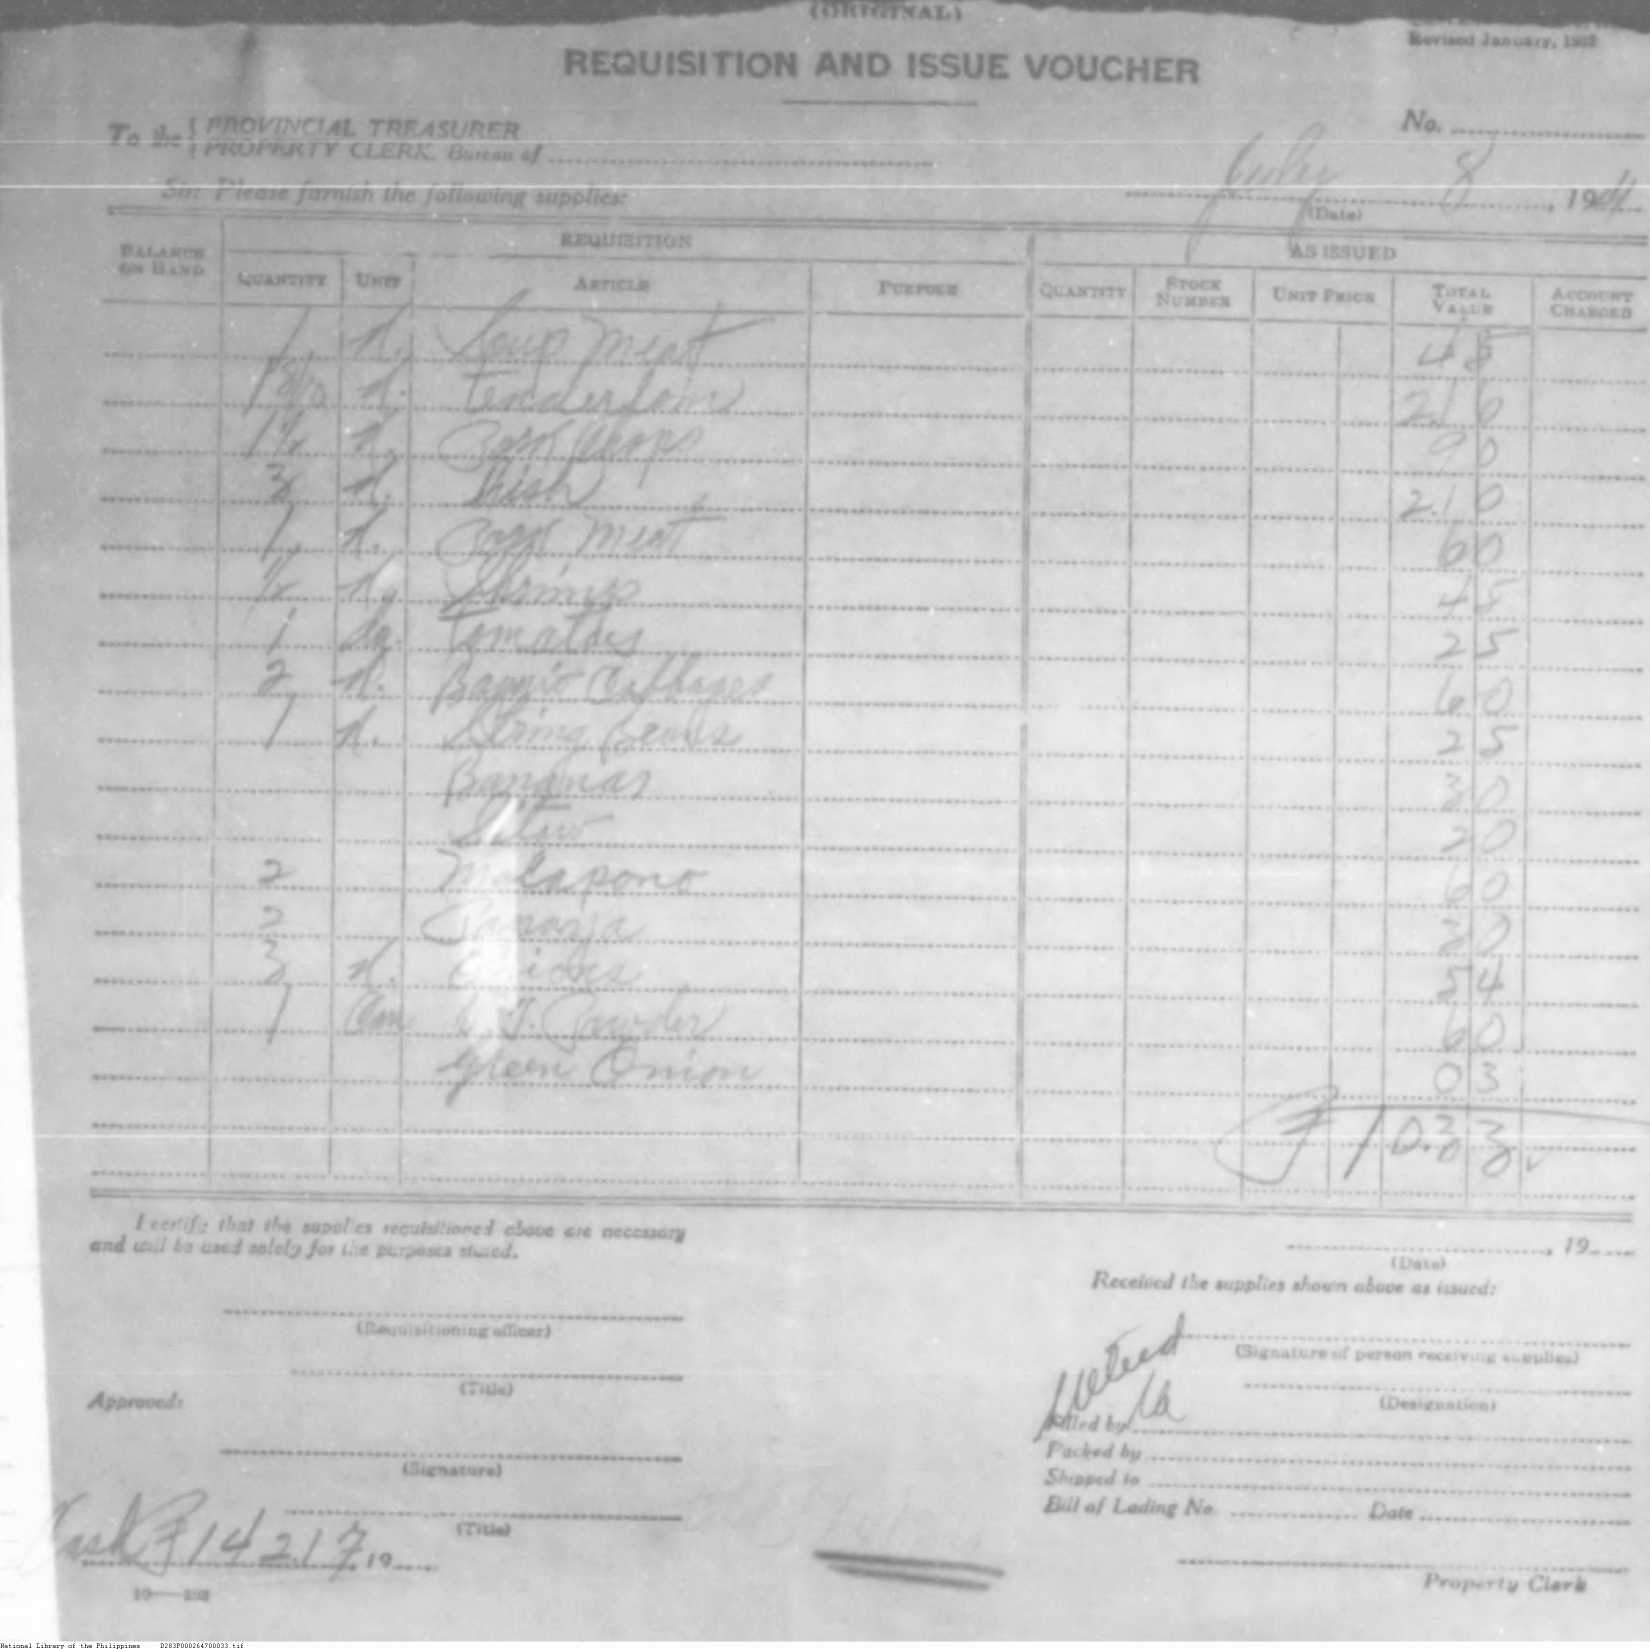 (ORIGINAL)
Revised January, 1932
REQUISITION AND ISSUE VOUCHER
No.
To the { PROVINCIAL TREASURER
PROPERTY CLERK, Bureau of
July 8, 1941
(Date)
Sir: Please furnish the following supplies:
BALANCE ON HAND REQUISITION AS ISSUED
QUANTITY UNIT ARTICLE PURPOSE QUANTITY STOCK NUMBER UNIT PRICE TOTAL VALUE ACCOUNT CHARGED
1 k. Soup Meat 45
k. Tenderloin 2.10
k. Pork Chops 90
3 k. 2.10
1 k. Pork Meat 60
½ k. Shrimps 45
1 Tomatoes 25
2 k. Baguio Cabbages 60
1 k. String Beans 25
Bananas 30
20
2 Malapono 60
2 Papaya 30
3 k. Onions 54
1 Can Powder 60
Green Onion 03
₱ 10.33
I certify that the supplies requisitioned above are necessary
and will be used solely for the purposes stated.
, 19
(Date)
Received the supplies shown above as issued:
(Requisitioning officer)
(Signature of person receiving supplies)
(Title)
(Designation)
Approved:
Filled by
Packed by
(Signature)
Shipped to
Bill of Lading No. Date
(Title)
Cash ₱ 142.17, 19
Property Clerk
National Library of the Philippines D283P000264700033.tif